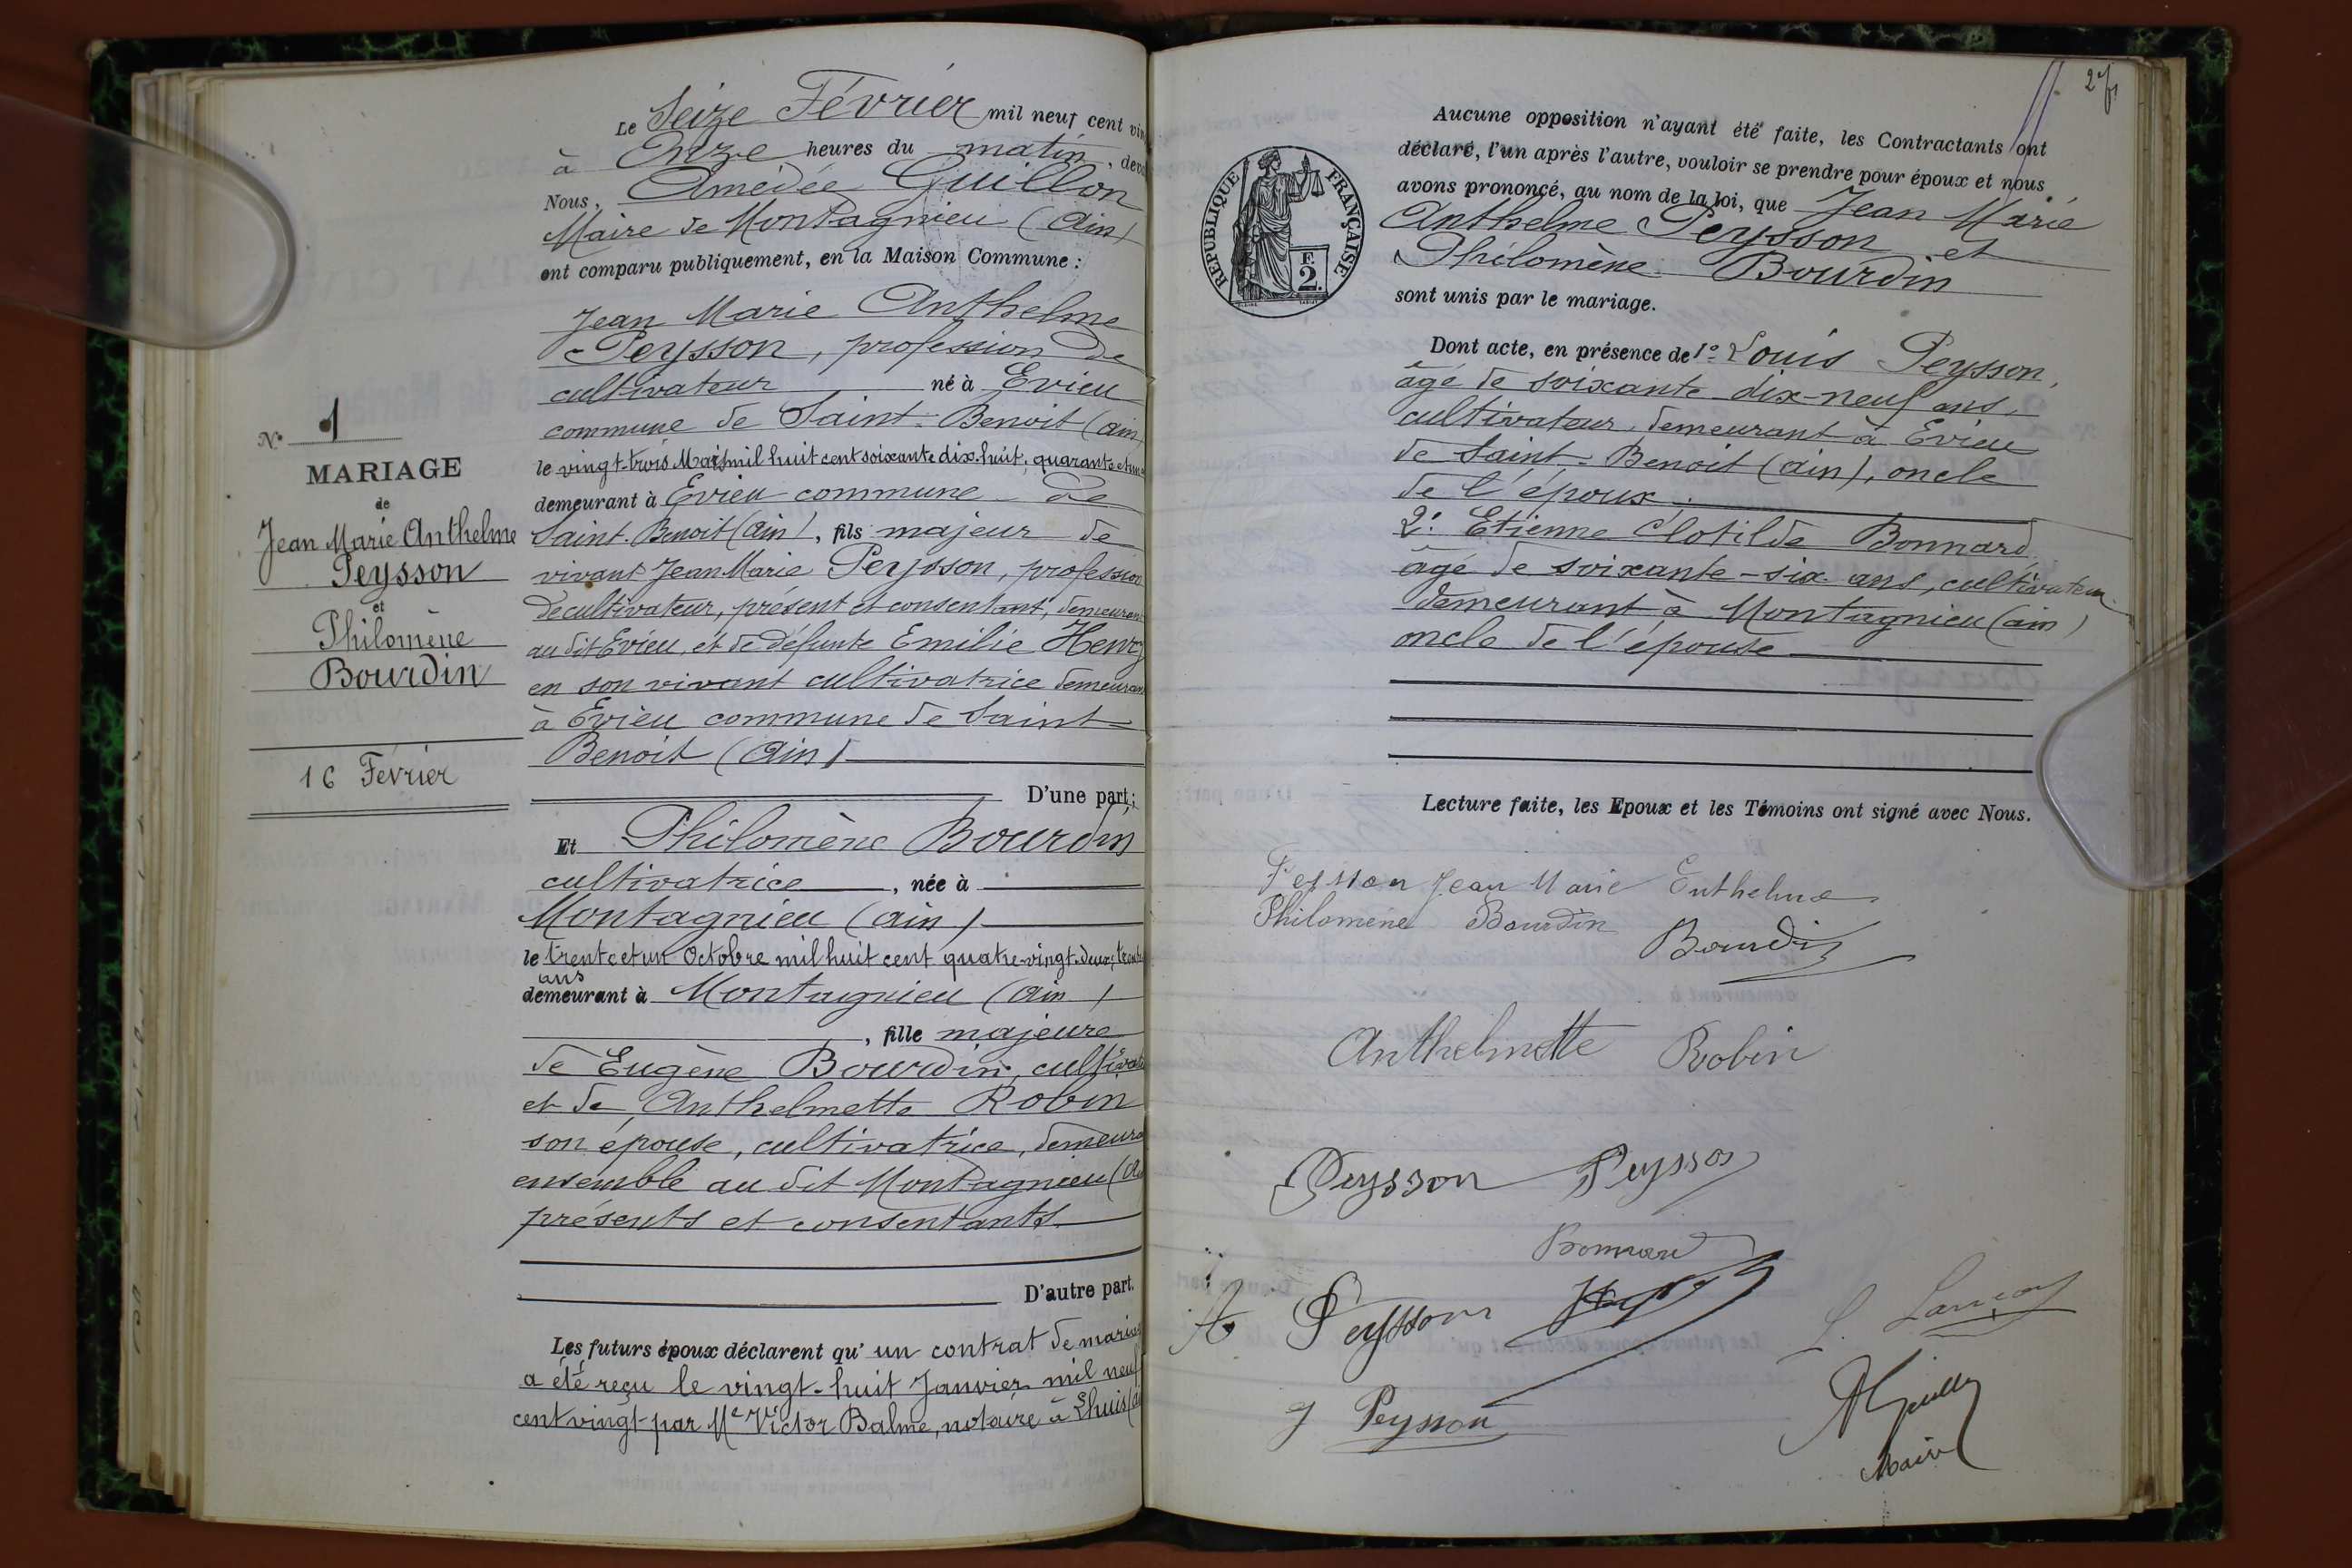 N° 1
MARIAGE
de
Jean Marie Anthelme
Peysson
et
Philomène
Bourdin
16 Février
Le Seize Février mil neuf cent vin
à Onze heures du matin, deva
Nous, Amédée Guillon
Maire de Montagnieu (Ain)
ont comparu publiquement, en la Maison Commune :
Jean Marie Anthelme
Peysson, profession de
cultivateur né à Evieu
commune de Saint-Benoit (ain)
le vingt-trois Mars mil huit cent soixante dix-huit, quarante et un
demeurant à Evieu commune de
Saint-Benoit (ain), fils majeur de
vivant Jean Marie Peysson, profession
de cultivateur, présent et consentant, demeurant
au dit Evieu, et de défunte Emilie Henry
en son vivant cultivatrice demeurant
à Evieu commune de Saint-
Benoit (Ain)
D'une part ;
Et Philomène Bourdin
cultivatrice, née à
Montagnieu (ain)
le trente et un Octobre mil huit cent quatre-vingt-deux, trente
ans
demeurant à Montagnieu (Ain)
, fille majeure
de Eugène Bourdin, cultivate
et de Anthelmette Robin
son épouse, cultivatrice, demeura
ensemble au dit Montagnieu (Ai
présents et consentants.
D'autre part.
Les futurs époux déclarent qu'un contrat de mariage
a été reçu le vingt-huit Janvier mil neuf
cent vingt par Me Victor Balme, notaire à Lhuis (ai
27
RÉPUBLIQUE FRANÇAISE
F.
2.
Aucune opposition n'ayant été faite, les Contractants ont
déclaré, l'un après l'autre, vouloir se prendre pour époux et nous
avons prononcé, au nom de la loi, que Jean Marie
Anthelme Peysson et
Philomène Bourdin
sont unis par le mariage.
Dont acte, en présence de 1° Louis Peysson,
âgé de soixante dix-neuf ans,
cultivateur, demeurant à Evieu
de Saint-Benoit (ain), oncle
de l'époux.
2° Etienne Clotilde Bonnard
âgé de soixante-six ans, cultivateur
demeurant à Montagnieu (ain)
oncle de l'épouse
Lecture faite, les Epoux et les Témoins ont signé avec Nous.
Peysson Jean Marie Enthelme
Philomène Bourdin
Bourdin
Anthelmette Robin
Peysson Peysson
Bonnard
Peysson
J Peysson
A Guillon
Maire